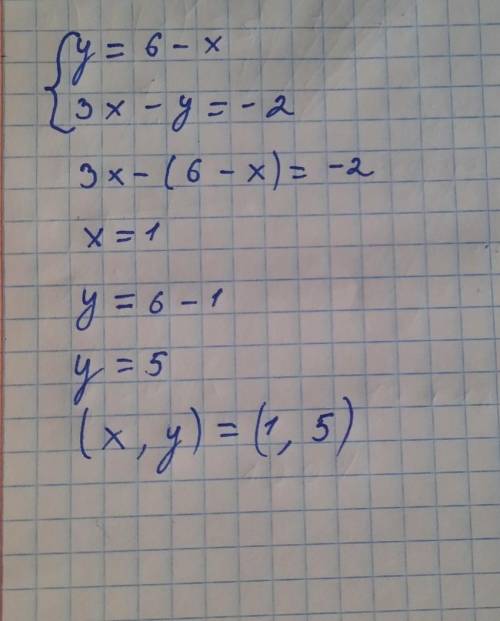 {y = 6 - x
3x - y = -2
3x - (6 - x) = -2
x = 1
y = 6 - 1
y = 5
(x, y) = (1, 5)